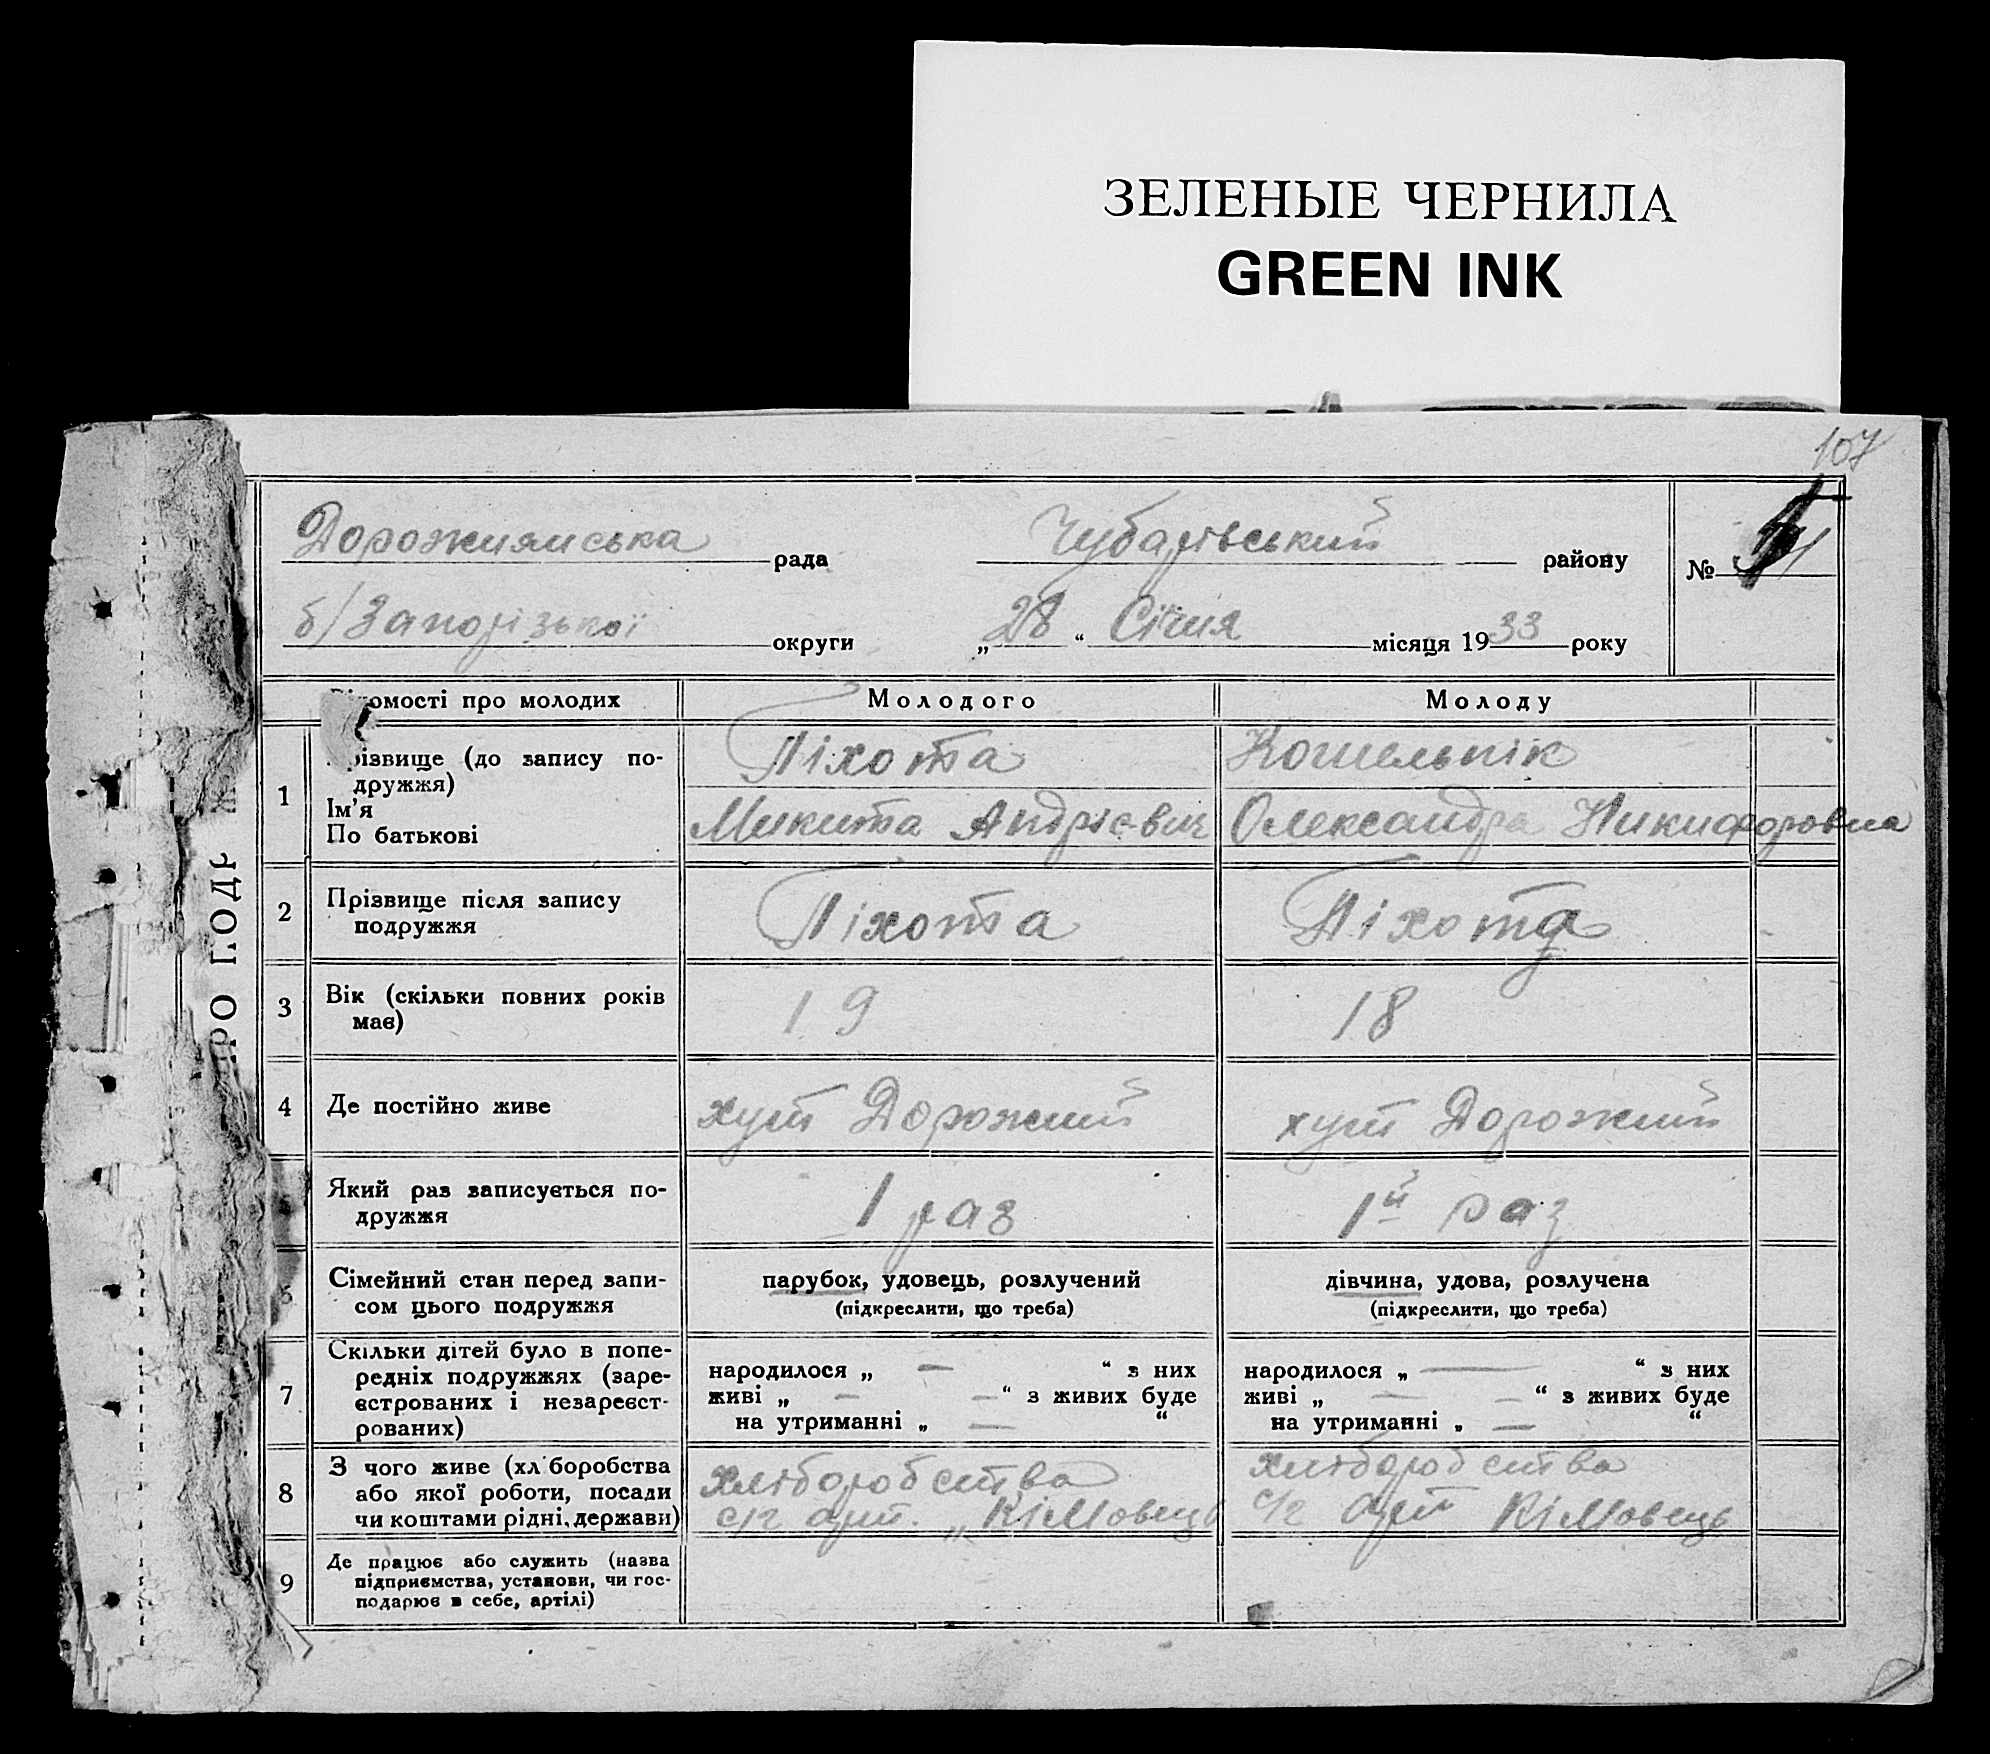 ЗЕЛЕНЫЕ ЧЕРНИЛА
GREEN INK
107
Дорожнянська рада Чубарівський району №
б/Запорізької округи „28“ Січня місяця 1933 року
омості про молодих Молодого Молоду
1 різвище (до запису по-
дружжя)
Ім'я
По батькові
Піхота Кошельнік
Микита Андрієвич Олександра Никифоровна
2 Прізвище після запису
подружжя
Піхота Піхота
3 Вік (скільки повних років
має)
19 18
4 Де постійно живе хут Дорожний хут Дорожний
Який раз записується по-
дружжя
1 раз 1й раз
Сімейний стан перед запи-
сом цього подружжя
парубок, удовець, розлучений дівчина, удова, розлучена
(підкреслити, що треба) (підкреслити, що треба)
7 Скільки дітей було в попе-
редніх подружжях (заре-
єстрованих і незареєст-
рованих)
народилося „ — “ з них народилося „ — “ з них
живі „ — — “ з живих буде живі „ — — “ з живих буде
на утриманні „ — “ на утриманні „ — “
8 З чого живе (хл боробства
або якої роботи, посади
чи коштами рідні, держави)
хліборобства хліборобства
с/г арт. „Кімовець с/г арт Кімовець
9 Де працює або служить (назва
підприємства, установи, чи гос-
подарює в себе, артілі)
РО ПОДР